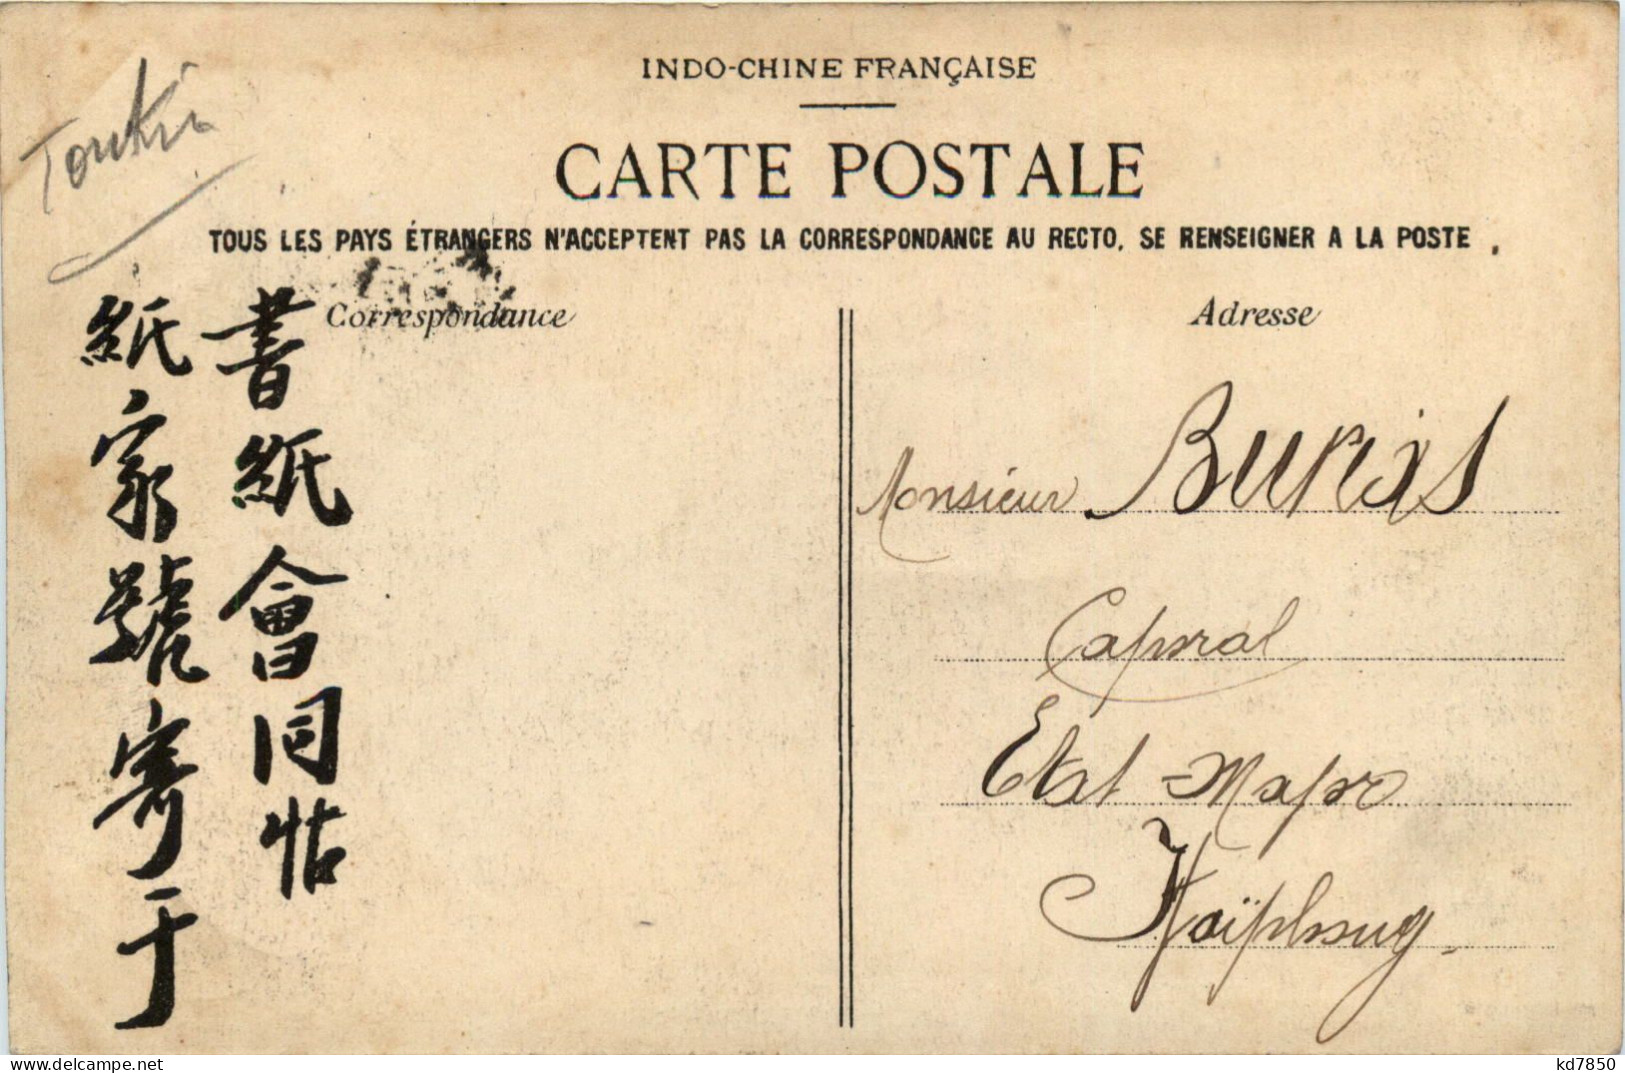 Tonkin
INDO-CHINE FRANÇAISE
CARTE POSTALE
TOUS LES PAYS ÉTRANGERS N'ACCEPTENT PAS LA CORRESPONDANCE AU RECTO, SE RENSEIGNER A LA POSTE.
Correspondance
書紙會同帖
紙家號寄于
Adresse
Monsieur
Caporal
Etat-Major
Haïphong
kd7850